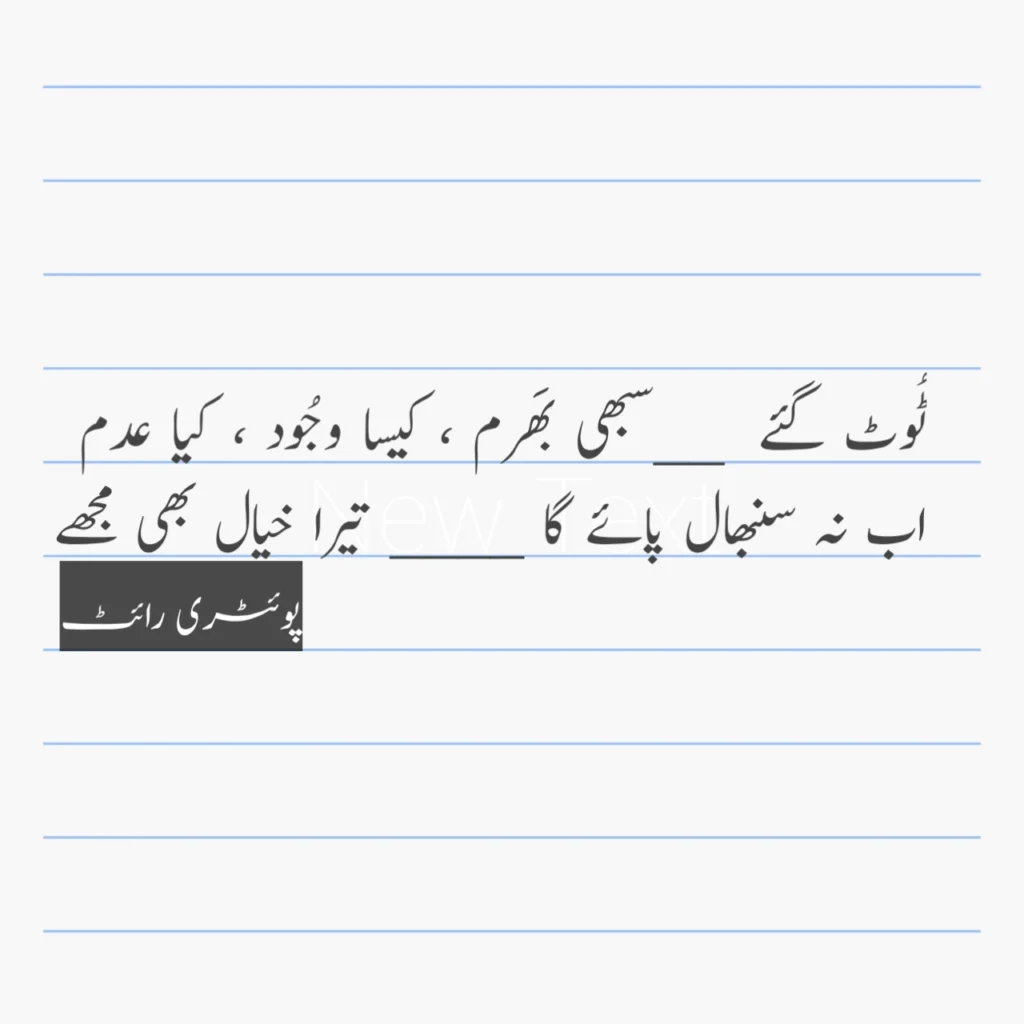 ٹُوٹ گئے ___ سبھی بھَرم ، کیسا وجُود ، کیا عدم
اب نہ سنبھال پائے گا ______ تیرا خیال بھی مجھے
New Text
پوئٹری رائٹ